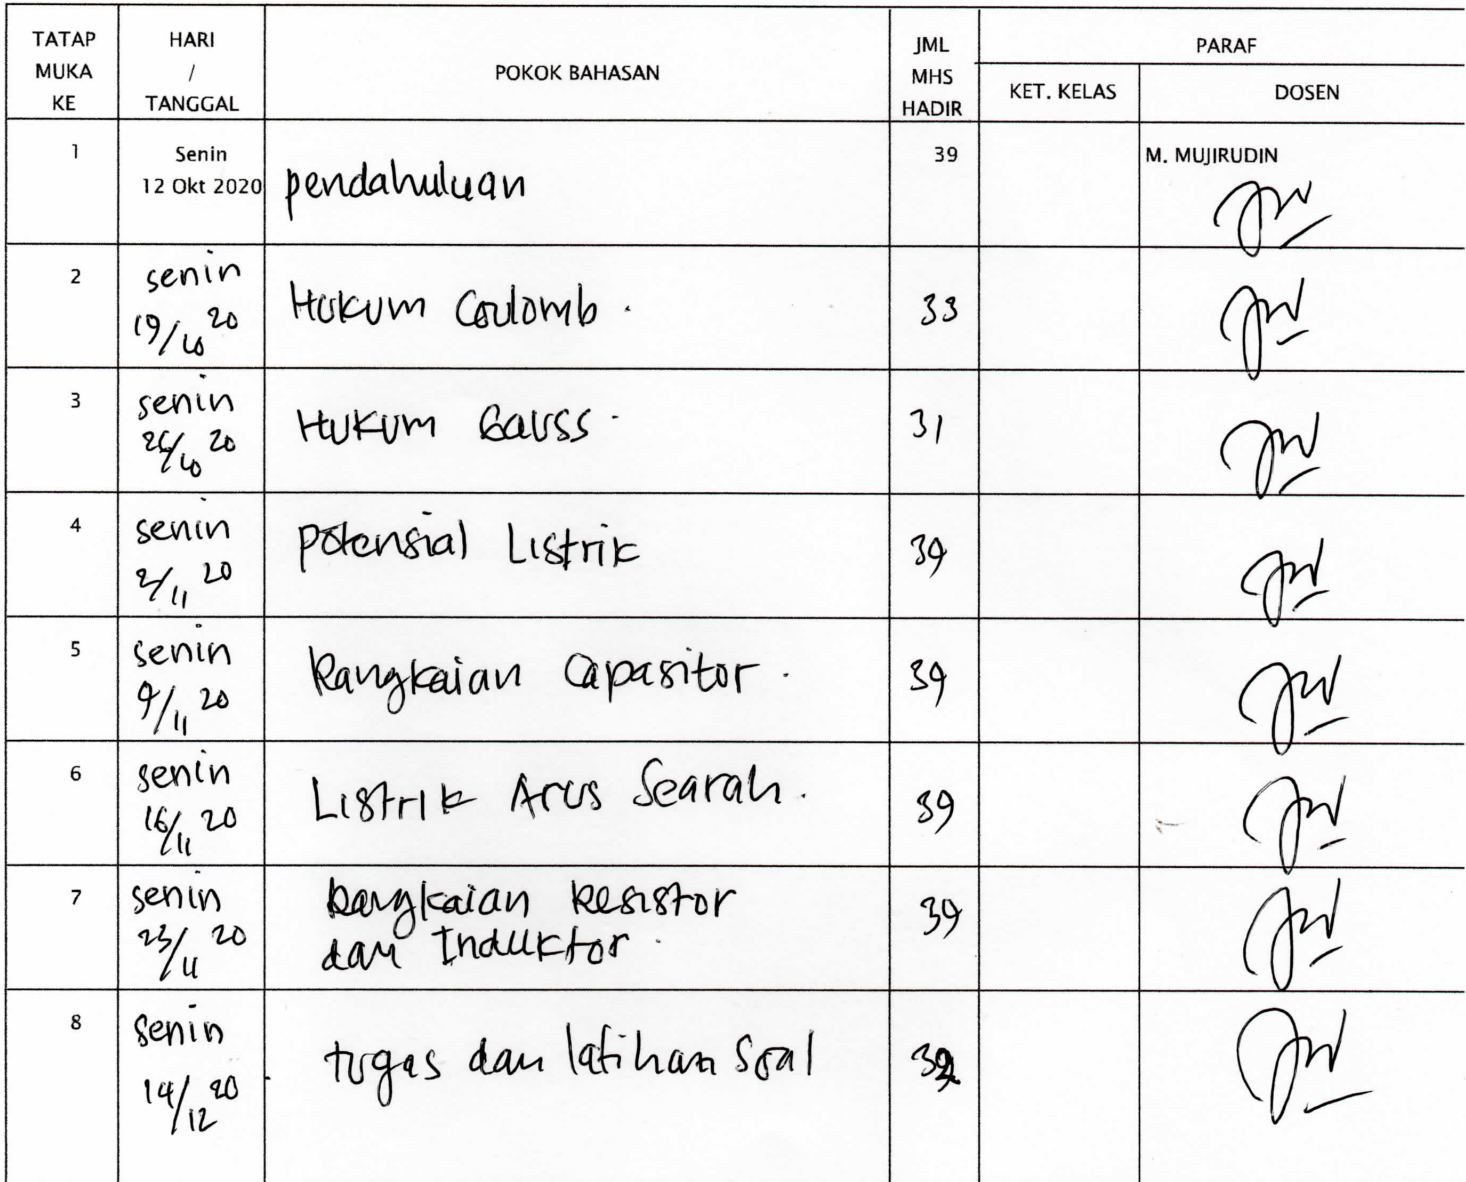 TATAP MUKA KE
HARI / TANGGAL
POKOK BAHASAN
JML MHS HADIR
PARAF
KET. KELAS
DOSEN
1
Senin
12 Okt 2020
pendahuluan
39
M. MUJIRUDIN
2
senin
19/10 20
Hukum Coulomb.
33
3
senin
26/10 20
Hukum Gauss.
31
4
senin
2/11 20
potensial Listrik
39
5
senin
9/11 20
Rangkaian Capasitor.
39
6
senin
16/11 20
Listrik Arus Searah.
39
7
senin
23/11 20
Rangkaian Resistor
dan Induktor.
39
8
senin
14/12 20
tugas dan latihan soal